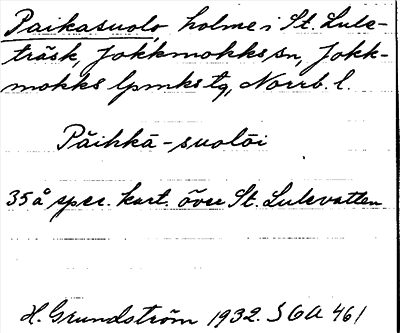 Paikasuolo, holme i St. Lule-
träsk, Jokkmokks sn, Jokk-
mokks lpmks tg, Norrb. l.
Päihkā-suolōi
35 å spec. kart. över St. Lulevatten
H. Grundström 1932. SOA 461